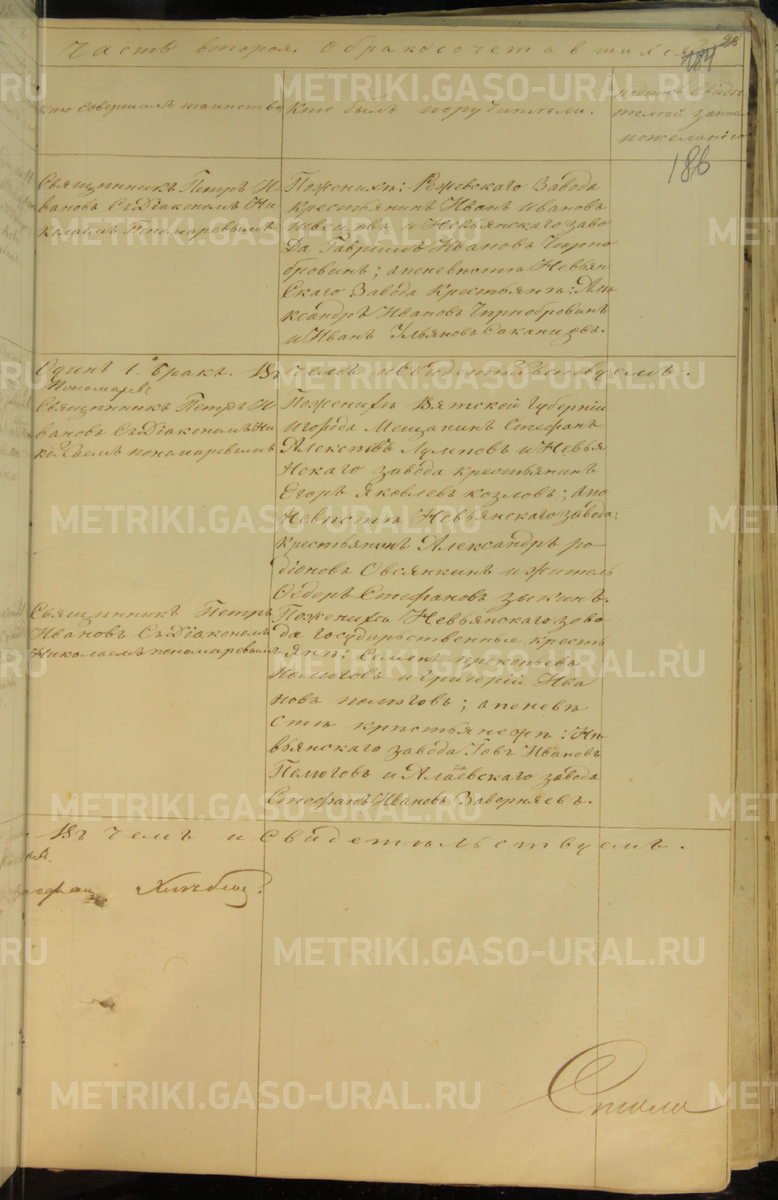 Часть вторая, о бракосочетавшихся
28
184
186
Кто совершалъ таинство
Кто былъ поручители.
пожеланію
Священникъ Петръ И-
вановъ Съ Діакономъ Ни-
колаемъ Пономаревымъ
По женихѣ: Режевскаго Завода
крестьянинъ Иванъ Ивановъ
и Невьянскаго заво-
да Гавріилъ Ивановъ Черно-
бровинъ; а по невѣстѣ Невьян-
скаго Завода крестьянѣ: Але-
ксандръ Ивановъ Чернобровинъ
и Иванъ Ульяновъ
Одинъ 1. бракъ. Въ чемъ и свидетельствуемъ.
Пономаревъ
Священникъ Петръ И-
вановъ Съ Діакономъ Ни-
колаемъ пономаревымъ
По женихѣ Вятской Губерніи
города Мещанинъ Стефанъ
Алексѣевъ Лумповъ и Невья-
нскаго завода крестьянинъ
Егоръ Яковлевъ козловъ; а по
Невѣстѣ Невьянскаго завода:
крестьянинъ Александръ ро-
діоновъ Овсянкинъ и житель
Ѳедоръ Стефановъ зыкинъ.
Священникъ Петръ
Ивановъ Съ Діакономъ
Николаемъ пономаревымъ
По женихѣ Невьянскаго заво-
да государственные кресть-
яне: Семенъ прокопьевъ
Полюговъ и григорій Ива-
новъ полюговъ; а по невѣ-
стѣ крестьяне же: Не-
вьянскаго завода Іовъ Ивановъ
Полюговъ и Алапаевскаго завода
Стефанъ Ивановъ Заверняевъ.
Въ чемъ и свидетельствуемъ.
METRIKI.GASO-URAL.RU